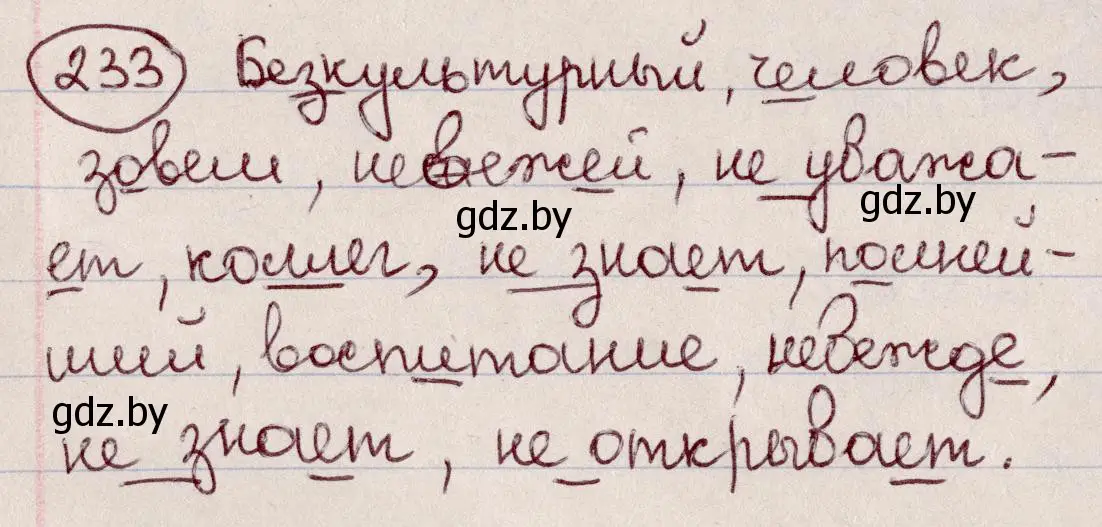 233 Безкультурный, человек,
зовем, невежей, не уважа-
gdz.by gdz.by
ет, коллег, не знает, полней-
ший, воспитание, невежде,
gdz.by
не знает, не открывает.